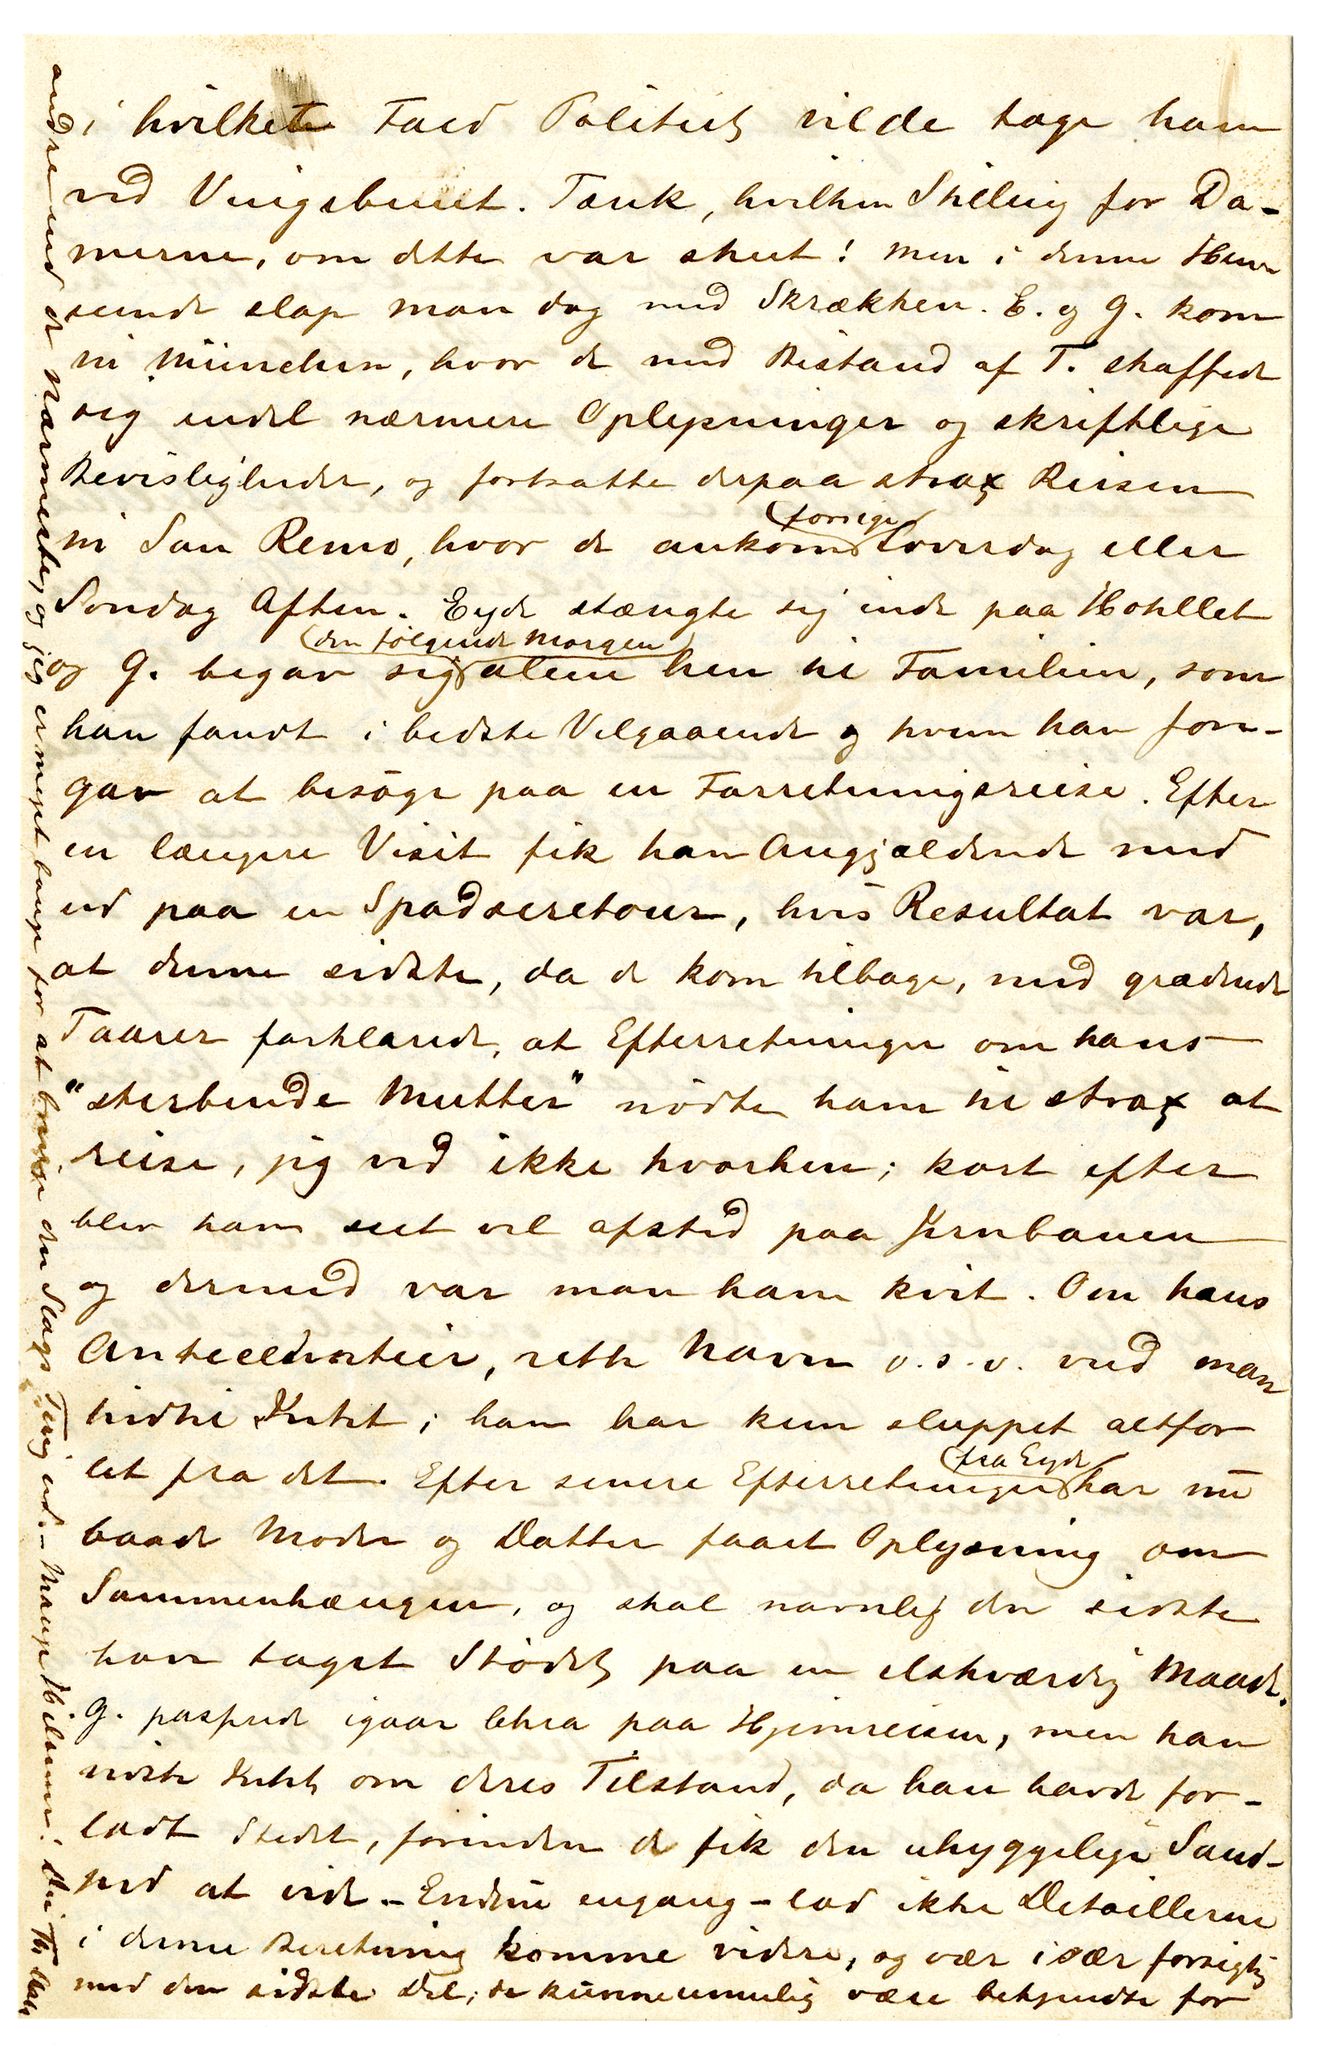 i hvilket Fald Politiet vilde tage ham
ved Vingebenet. Tænk, hvilken Stilling for Da-
merne, om dette var skeet! Men i denne Hen-
seende slap man dog med Skrækken. E. og G. kom
til München, hvor de med Bistand af T. skaffede
sig endel nærmere Oplysninger og skriftlige
Bevisligheder, og fortsatte derpaa strax Reisen
til San Remo, hvor de ankom forrige Löverdag eller
Söndag Aften. Eyde stængte sig inde paa Hotellet
og G. begav sig den følgende Morgen alene hen til Familien, som
han fandt i bedste Velgaaende og hvem han fore-
gav at besöge paa en Forretningsreise. Efter
en længere Visit fik han Angjældende med
ud paa en Spadseretour, hvis Resultat var,
at denne sidste, da de kom tilbage, med grædende
Taarer forklarede, at Efterretninger om hans
"sterbende Mutter" nödte ham til strax at
reise, jeg ved ikke hvorhen; kort efter
blev han seet vel afsted paa Jernbanen
og dermed var man ham kvit. Om hans
Antecedentier, rette Navn o.s.v. veed man
hidtil Intet; han har kun sluppet altfor
let fra det. Efter senere Efterretninger fra Eyde har nu
baade Moder og Datter faaet Oplysning om
Sammenhængen, og skal navnlig den sidste
have taget Stödet paa en elskværdig Maade.
G. passerede igaar lehra paa Hjemreisen, men han
vidste Intet om deres Tilstand, da han havde for-
ladt Stedet, forinden de fik den uhyggelige Sand-
hed at vide. - Endnu engang - lad ikke Detaillerne
i denne Beretning komme videre, og vær især forsigtig
med den sidste Del; de kunne umulig være bekjendte for
andre end de Nærmeste, og jeg er meget bange for at bringe den Slags Ting ud. - Mange Hilsener! Din Th.